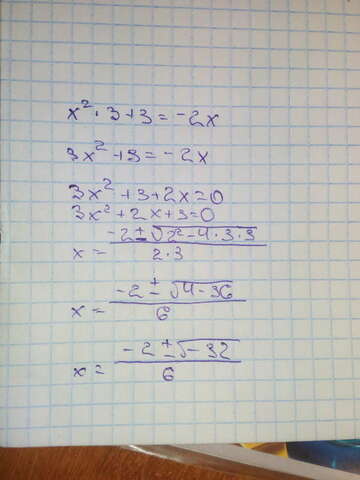 x² · 3 + 3 = -2x
3x² + 3 = -2x
3x² + 3 + 2x = 0
3x² + 2x + 3 = 0
x = (-2 ± √(2² - 4 · 3 · 3)) / (2 · 3)
x = (-2 ± √(4 - 36)) / 6
x = (-2 ± √(-32)) / 6